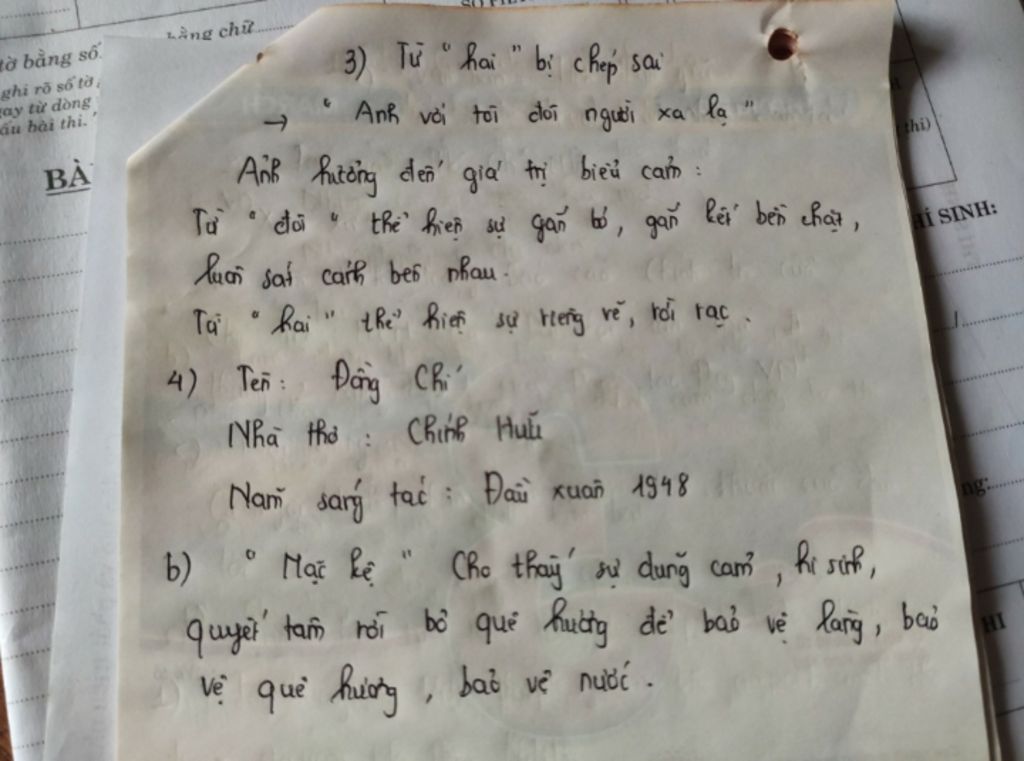 bằng chữ
tờ bằng số
ghi rõ số tờ
ay từ dòng
ấu bài thi.
BÀ
thi)
HÍ SINH:
ng:
HI
3) Từ " hai " bị chép sai
→ " Anh với tôi đôi người xa lạ "
Ảnh hưởng đến giá trị biểu cảm :
Từ " đôi " thể hiện sự gắn bó, gắn kết bền chặt,
luôn sát cánh bên nhau.
Từ " hai " thể hiện sự riêng rẽ, rời rạc .
4) Tên : Đồng Chí
Nhà thơ : Chính Hữu
Năm sáng tác : Đầu xuân 1948
b) " Mặc kệ " Cho thấy sự dũng cảm , hi sinh,
quyết tâm rời bỏ quê hương để bảo vệ làng, bảo
vệ quê hương , bảo vệ nước .